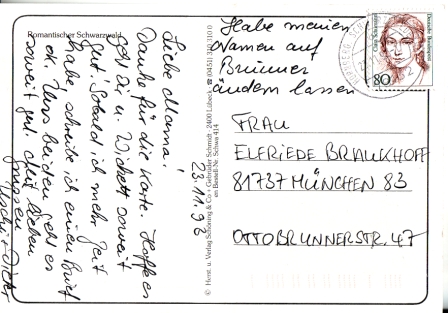 Romantischer Schwarzwald
Habe meinen
Namen auf
Brunner
ändern lassen
80
Deutsche Bundespost
23.11.93
Liebe Mama!
Danke für die Karte. Hoffe es
geht dir u. Wickerl soweit
gut. Sobald ich mehr Zeit
habe schreibe ich einen Brief
ok. Uns beiden geht es
soweit gut. Mit lieben
Grüssen
© Horst u. Verlag Schöning & Co + Gebrüder Schmidt, 2400 Lübeck ☎ (0451) 310 310 0
Bestell-Nr. Schwa 414
FRAU
ELFRIEDE BRAUKHOFF
81737 MÜNCHEN 83
OTTOBRUNNERSTR. 47